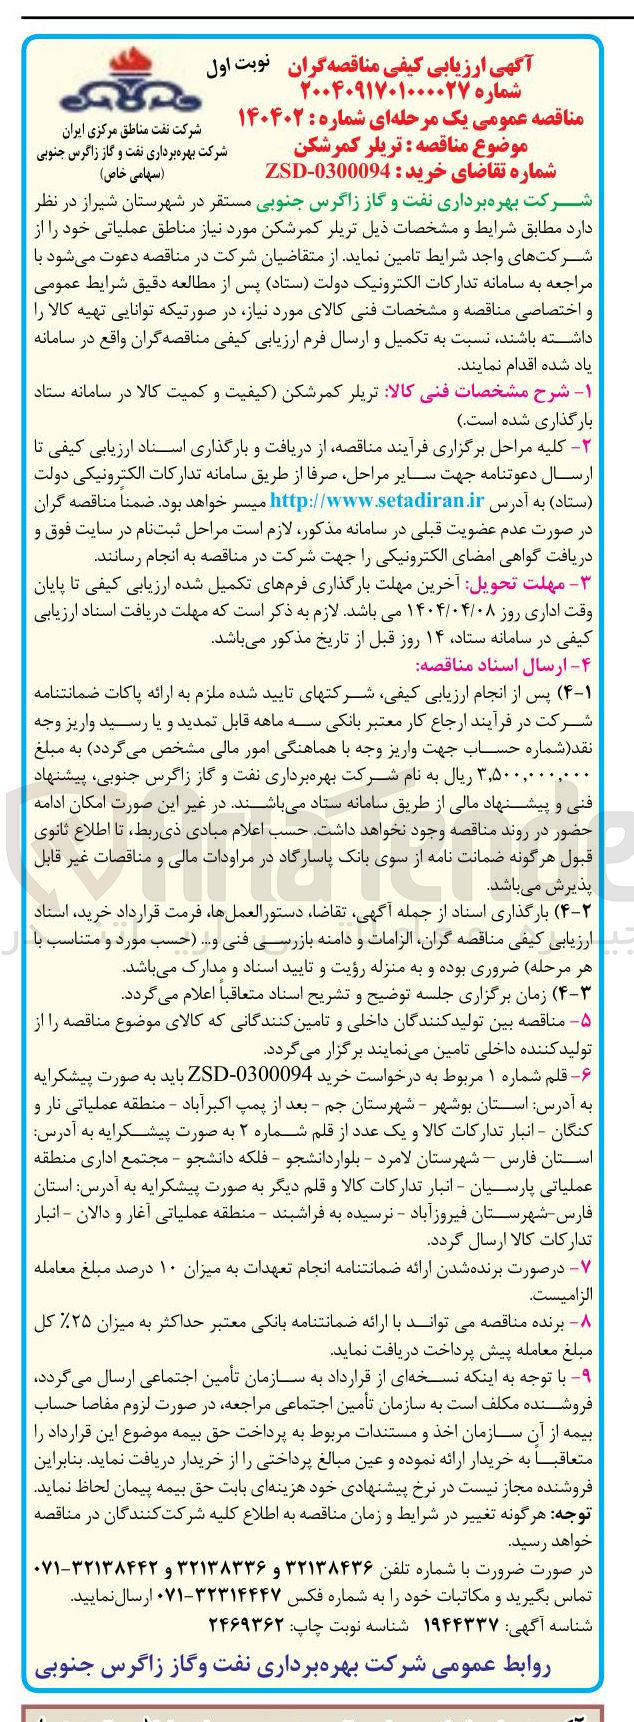 آگهی ارزیابی کیفی مناقصه‌گران
نوبت اول
شماره ۲۰۰۴۰۹۱۷۰۱۰۰۰۰۲۷
مناقصه عمومی یک مرحله‌ای شماره : ۱۴۰۴۰۲
موضوع مناقصه : تریلر کمرشکن
شماره تقاضای خرید : ZSD-0300094
شرکت نفت مناطق مرکزی ایران
شرکت بهره‌برداری نفت و گاز زاگرس جنوبی
(سهامی خاص)
شـــرکت بهره‌برداری نفت و گاز زاگرس جنوبی مستقر در شهرستان شیراز در نظر
دارد مطابق شرایط و مشخصات ذیل تریلر کمرشکن مورد نیاز مناطق عملیاتی خود را از
شــرکت‌های واجد شرایط تامین نماید. از متقاضیان شرکت در مناقصه دعوت می‌شود با
مراجعه به سامانه تدارکات الکترونیک دولت (ستاد) پس از مطالعه دقیق شرایط عمومی
و اختصاصی مناقصه و مشخصات فنی کالای مورد نیاز، در صورتیکه توانایی تهیه کالا را
داشــته باشند، نسبت به تکمیل و ارسال فرم ارزیابی کیفی مناقصه‌گران واقع در سامانه
یاد شده اقدام نمایند.
۱- شرح مشخصات فنی کالا: تریلر کمرشکن (کیفیت و کمیت کالا در سامانه ستاد
بارگذاری شده است.)
۲- کلیه مراحل برگزاری فرآیند مناقصه، از دریافت و بارگذاری اســناد ارزیابی کیفی تا
ارســال دعوتنامه جهت ســایر مراحل، صرفا از طریق سامانه تدارکات الکترونیکی دولت
(ستاد) به آدرس http://www.setadiran.ir میسر خواهد بود. ضمناً مناقصه گران
در صورت عدم عضویت قبلی در سامانه مذکور، لازم است مراحل ثبت‌نام در سایت فوق و
دریافت گواهی امضای الکترونیکی را جهت شرکت در مناقصه به انجام رسانند.
۳- مهلت تحویل: آخرین مهلت بارگذاری فرم‌های تکمیل شده ارزیابی کیفی تا پایان
وقت اداری روز ۱۴۰۴/۰۴/۰۸ می باشد. لازم به ذکر است که مهلت دریافت اسناد ارزیابی
کیفی در سامانه ستاد، ۱۴ روز قبل از تاریخ مذکور می‌باشد.
۴- ارسال اسناد مناقصه:
۴-۱) پس از انجام ارزیابی کیفی، شــرکتهای تایید شده ملزم به ارائه پاکات ضمانتنامه
شــرکت در فرآیند ارجاع کار معتبر بانکی ســه ماهه قابل تمدید و یا رســید واریز وجه
نقد(شماره حســاب جهت واریز وجه با هماهنگی امور مالی مشخص می‌گردد) به مبلغ
۳,۵۰۰,۰۰۰,۰۰۰ ریال به نام شــرکت بهره‌برداری نفت و گاز زاگرس جنوبی، پیشنهاد
فنی و پیشــنهاد مالی از طریق سامانه ستاد می‌باشــند. در غیر این صورت امکان ادامه
حضور در روند مناقصه وجود نخواهد داشت. حسب اعلام مبادی ذی‌ربط، تا اطلاع ثانوی
قبول هرگونه ضمانت نامه از سوی بانک پاسارگاد در مراودات مالی و مناقصات غیر قابل
پذیرش می‌باشد.
۴-۲) بارگذاری اسناد از جمله آگهی، تقاضا، دستورالعمل‌ها، فرمت قرارداد خرید، اسناد
ارزیابی کیفی مناقصه گران، الزامات و دامنه بازرســی فنی و... (حسب مورد و متناسب با
هر مرحله) ضروری بوده و به منزله رؤیت و تایید اسناد و مدارک می‌باشد.
۴-۳) زمان برگزاری جلسه توضیح و تشریح اسناد متعاقباً اعلام می‌گردد.
۵- مناقصه بین تولیدکنندگان داخلی و تامین‌کنندگانی که کالای موضوع مناقصه را از
تولیدکننده داخلی تامین می‌نمایند برگزار می‌گردد.
۶- قلم شماره ۱ مربوط به درخواست خرید ZSD-0300094 باید به صورت پیشکرایه
به آدرس: اســتان بوشهر - شهرستان جم - بعد از پمپ اکبرآباد - منطقه عملیاتی نار و
کنگان - انبار تدارکات کالا و یک عدد از قلم شــماره ۲ به صورت پیشــکرایه به آدرس:
اســتان فارس – شهرستان لامرد - بلواردانشجو - فلکه دانشجو - مجتمع اداری منطقه
عملیاتی پارســیان - انبار تدارکات کالا و قلم دیگر به صورت پیشکرایه به آدرس: استان
فارس-شهرســتان فیروزآباد - نرسیده به فراشبند - منطقه عملیاتی آغار و دالان - انبار
تدارکات کالا ارسال گردد.
۷- درصورت برنده‌شدن ارائه ضمانتنامه انجام تعهدات به میزان ۱۰ درصد مبلغ معامله
الزامیست.
۸- برنده مناقصه می توانــد با ارائه ضمانتنامه بانکی معتبر حداکثر به میزان ۲۵٪ کل
مبلغ معامله پیش پرداخت دریافت نماید.
۹- با توجه به اینکه نســخه‌ای از قرارداد به ســازمان تأمین اجتماعی ارسال می‌گردد،
فروشــنده مکلف است به سازمان تأمین اجتماعی مراجعه، در صورت لزوم مفاصا حساب
بیمه از آن ســازمان اخذ و مستندات مربوط به پرداخت حق بیمه موضوع این قرارداد را
متعاقبــاً به خریدار ارائه نموده و عین مبالغ پرداختی را از خریدار دریافت نماید. بنابراین
فروشنده مجاز نیست در نرخ پیشنهادی خود هزینه‌ای بابت حق بیمه پیمان لحاظ نماید.
توجه: هرگونه تغییر در شرایط و زمان مناقصه به اطلاع کلیه شرکت‌کنندگان در مناقصه
خواهد رسید.
در صورت ضرورت با شماره تلفن ۳۲۱۳۸۴۳۶ و ۳۲۱۳۸۳۳۶ و ۳۲۱۳۸۴۴۲-۰۷۱
تماس بگیرید و مکاتبات خود را به شماره فکس ۳۲۳۱۴۴۴۷-۰۷۱ ارسال‌نمایید.
شناسه آگهی: ۱۹۴۴۳۳۷ شناسه نوبت چاپ: ۲۴۶۹۳۶۲
روابط عمومی شرکت بهره‌برداری نفت وگاز زاگرس جنوبی